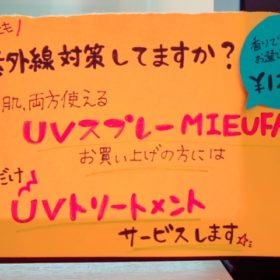 も!
紫外線対策してますか?
肌、両方使える
UVスプレーMIEUFA
お買い上げの方には
だけ
UVトリートメント
サービスします☆
香りで
お選び
¥1